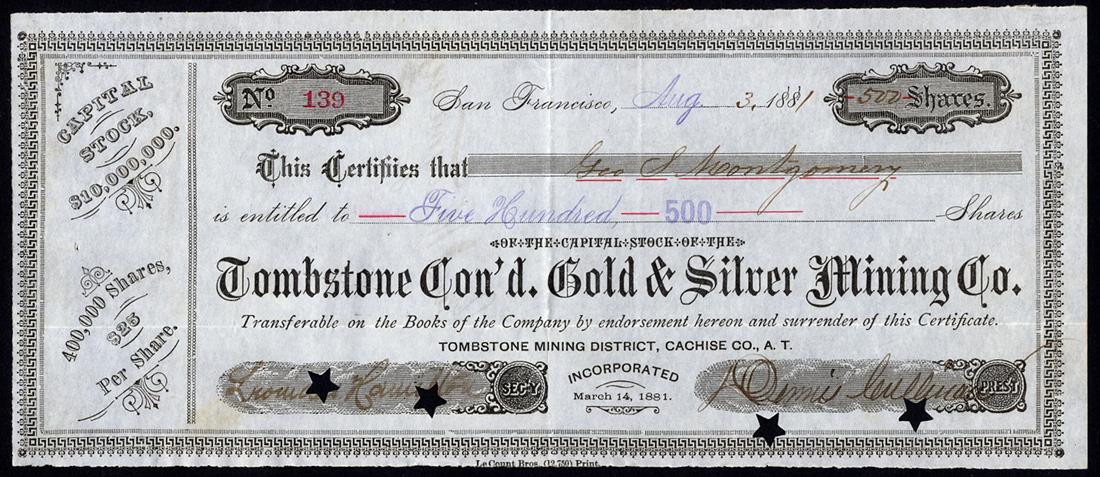 CAPITAL
STOCK,
$10,000,000.
400,000 Shares,
$25
Per Share.
No 139
San Francisco, Aug. 3, 1881
500 Shares.
This Certifies that Geo S Montgomery
is entitled to Five Hundred 500 Shares
OF THE CAPITAL STOCK OF THE
Tombstone Con'd. Gold & Silver Mining Co.
Transferable on the Books of the Company by endorsement hereon and surrender of this Certificate.
TOMBSTONE MINING DISTRICT, CACHISE CO., A. T.
SEC-Y
INCORPORATED
March 14, 1881.
PRES-T
Le Count Bros. (12,750) Print.